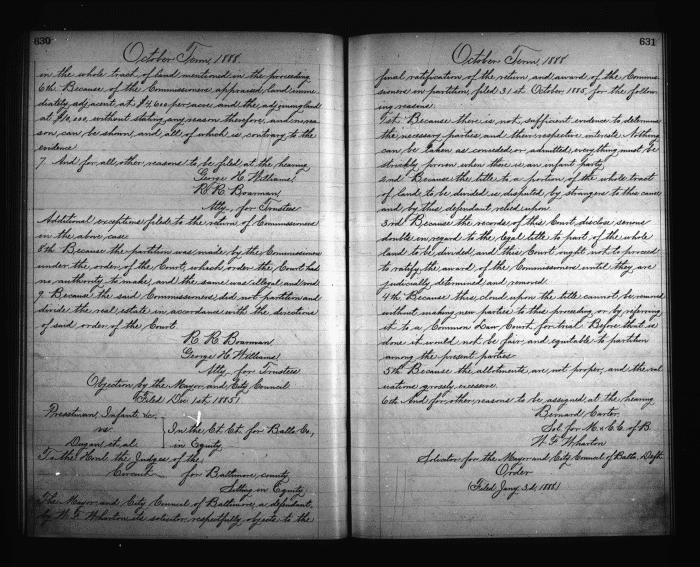 630
October Term, 1888.
in the whole tract of land mentioned in the proceeding
6th Because of the Commissioners appraised land imme-
diately adjacent at $4600 per acre, and the adjoining land
at $10,000, without stating any reason therefor, and no rea-
son can be shown, and all of which is contrary to the
evidence
7. And for all other reasons to be filed at the hearing
George H. Williams
R. R. Boarman
Atty. for Trustees
Additional exceptions filed to the return of Commissioners
in the above case
8th Because the partition was made by the Commissioners
under the order of the Court, which order the Court had
no authority to make, and the same was illegal and void
9. Because the said Commissioners did not partition and
divide the real estate in accordance with the directions
of said order of the Court.
R. R. Boarman
George H. Williams
Atty. for Trustees
Objection by the Mayor and City Council
(Filed Dec 1st, 1885)
Presstman, Infant. &c.
vs.
Dugan et. al.
In the Ct. Ct. for Balto. Co,
in Equity
To the Honl. the Judges of the
Circuit for Baltimore county
Sitting in Equity
The Mayor and City Council of Baltimore, a defendant,
by W. F. Wharton its solicitor, respectfully objects to the
631
October Term, 1888
final ratification of the return and award of the Commis-
sioners in partition, filed 31st October 1885, for the follow-
ing reasons:
1st. Because there is not sufficient evidence to determine
the necessary parties and their respective interests. Nothing
can be taken as conceded or admitted, everything must be
strictly proven when there is an infant party.
2nd Because the title to a portion of the whole tract
of land to be divided is disputed by strangers to this cause
and by this defendant relied upon
3rd Because the records of this Court disclose serious
doubts in regard to the legal title to part of the whole
land to be divided and this Court ought not to proceed
to ratify the award of the Commissioners until they are
judicially determined and removed
4th Because this cloud upon the title cannot be removed
without making new parties to this proceeding or by referring
it to a Common Law Court for trial. Before that is
done it would not be fair and equitable to partition
among the present parties
5th Because the allotments are not proper, and the val
uations grossly excessive.
6th And for other reasons to be assigned at the hearing
Bernard Carter,
Sol. for M. & C. C. of B.
W. F. Wharton
Solicitor for the Mayor and City Council of Balto., Deft.
Order
(Filed Jany 3d, 1886)